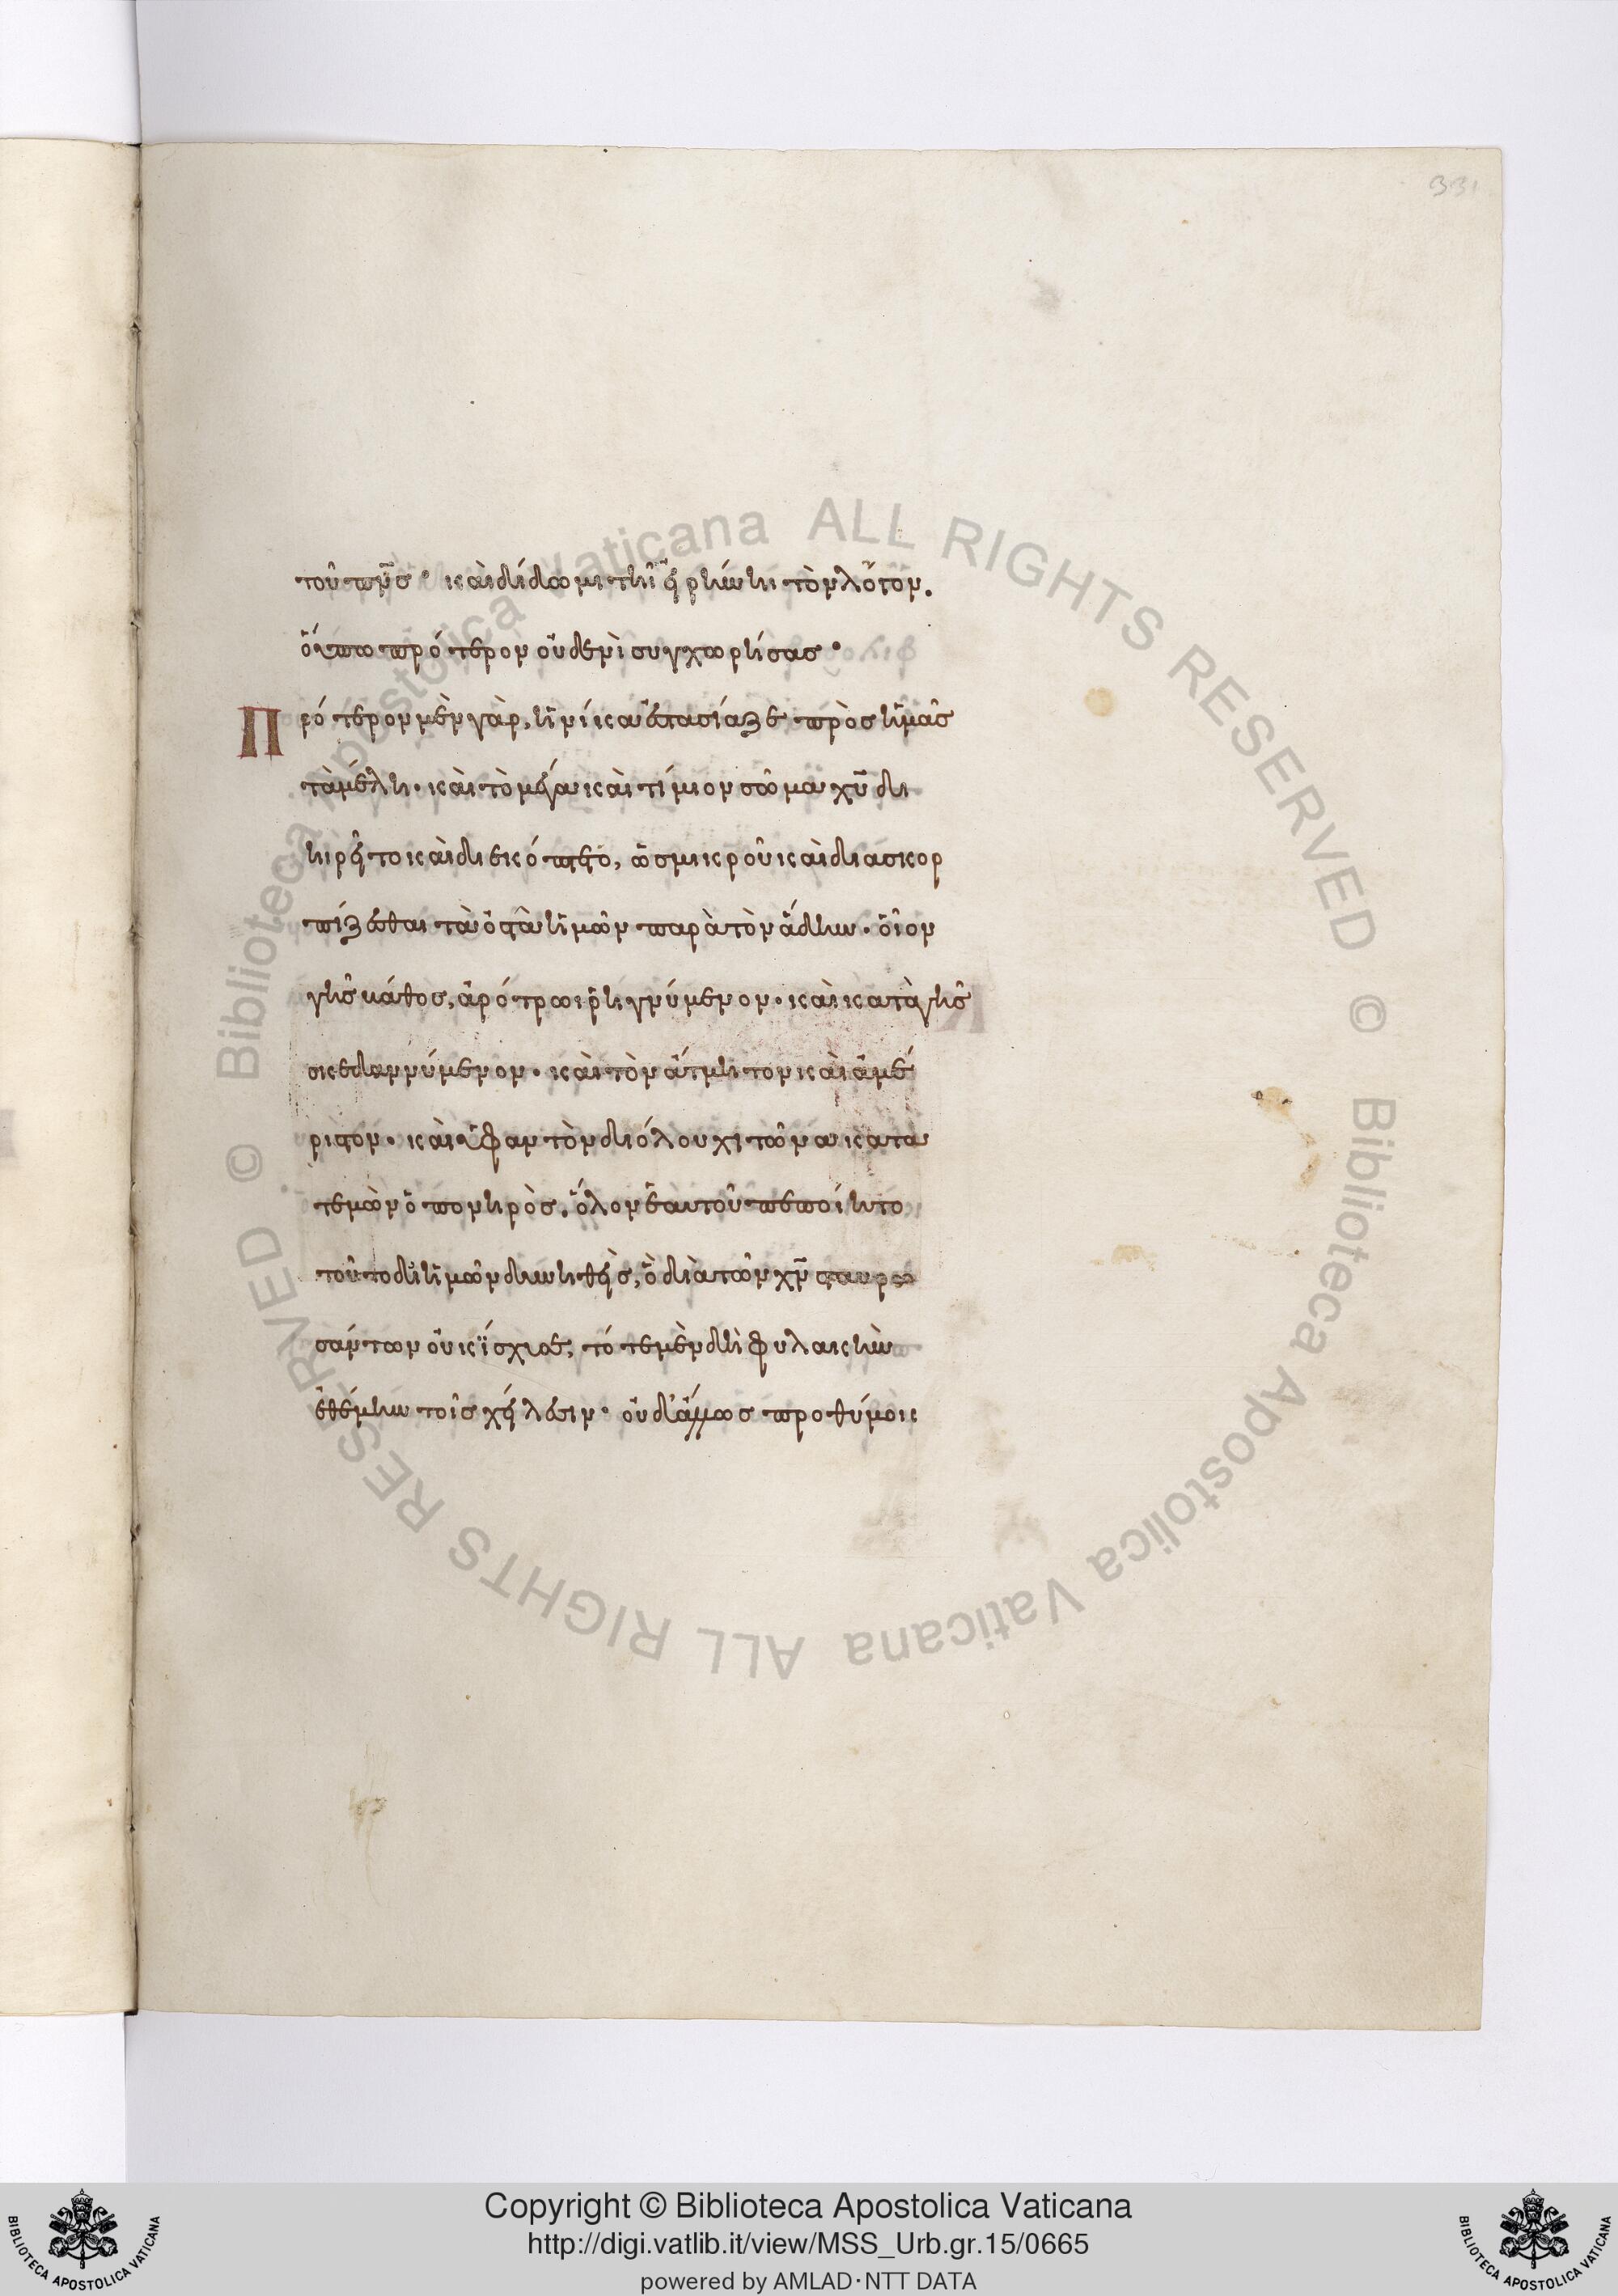 331
τοῦ πν̅σ· καὶ δίδωμι τῆι εἰρήνηι τὸν λόγον.
οὔπω πρότερον οὐδενὶ συγχωρήσας·
Πρότερον μὲν γὰρ, ἡνίκα ἐστασίαζε πρὸς ἡμᾶς
τὰ μέλη· καὶ τὸ μέγα καὶ τίμιον σῶμα χυ̅ δι
ηιρεῖτο καὶ διεκόπτετο, ὡς μικροῦ καὶ διασκορ
πίζεσθαι τὰ ὀστᾶ ἡμῶν παρὰ τὸν ἅδην· οἷον
γῆς πάχος, ἀρότρωι ῥηγνύμενον· καὶ κατὰ γῆς
σκεδαννύμενον· καὶ τὸν ἄτμητον καὶ ἀμέ
ριστον· καὶ ὑφαντὸν δι όλου χιτῶνα κατα
τεμὼν ὁ πονηρὸς, ὅλον ἑαυτοῦ πεποίητο
τοῦτο δι ἡμῶν δυνηθεὶς, ὃ διὰ τῶν χν̅ σταυρω
σάντων οὐκ ἴσχυσε, τότε μὲν δὴ φυλακὴν
ἐθέμην τοῖς χείλεσιν· οὐδ' ἄλλως προθύμοις
Copyright © Biblioteca Apostolica Vaticana
http://digi.vatlib.it/view/MSS_Urb.gr.15/0665
powered by AMLAD·NTT DATA
BIBLIOTECA APOSTOLICA VATICANA
BIBLIOTECA APOSTOLICA VATICANA
© Biblioteca Apostolica Vaticana ALL RIGHTS RESERVED © Biblioteca Apostolica Vaticana ALL RIGHTS RESERVED